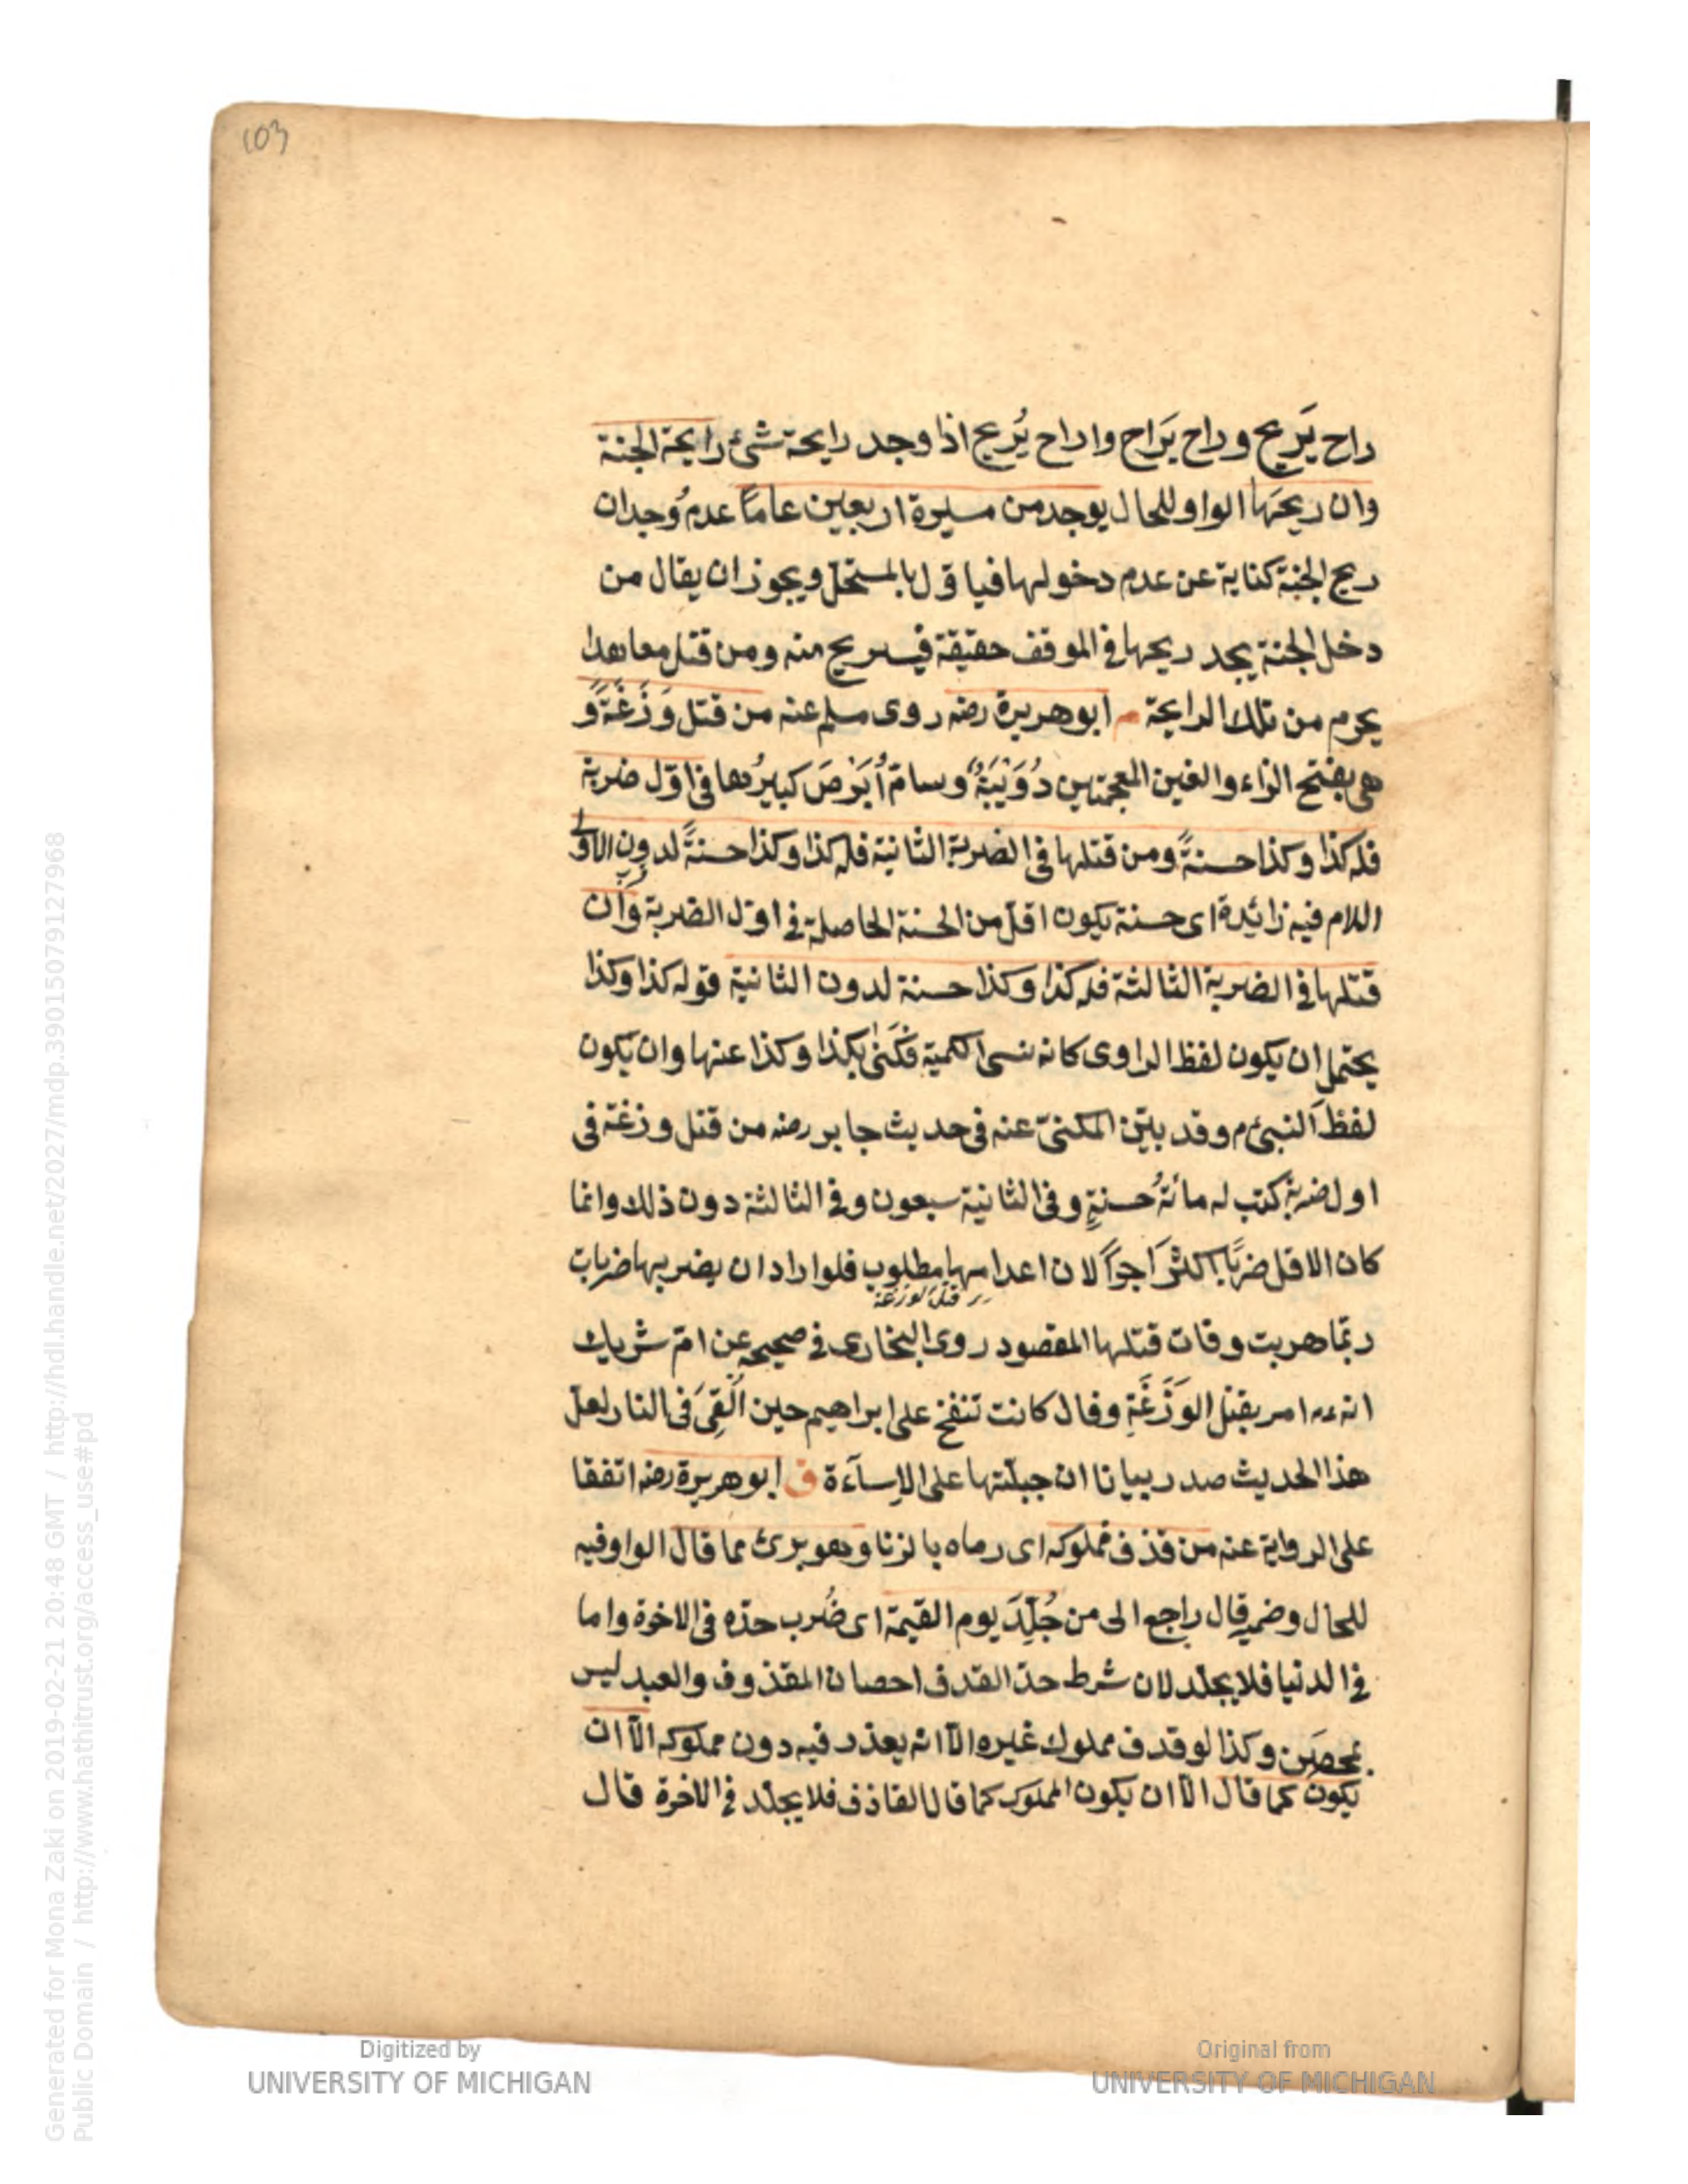 103
راح يَريح وراح يَراح واراح يُريح اذا وجد رايحة شئ رايحة الجنة
وان ريحَها الواو للحال يوجد من مسيرة اربعين عاماً عدم وُجدان
ريح الجنة كناية عن عدم دخولها فيأول بالمستحلّ ويجوز ان يقال من
دخل الجنة يجد ريحها في الموقف حقيقة فيستريح منه ومن قتل معاهدا
يحرم من تلك الرايحة م ابوهريرة رضه روى مسلم عنه من قتل وَزَغَةً و
هي بفتح الزاء والغين المعجمتين دُوَيْبَةٌ وسامّ أبْرَصَ كبيرُها في اوّل ضربة
فله كذا وكذا حسنةً ومن قتلها في الضربة الثانية فله كذا وكذا حسنةً لدون الاولى
اللام فيه زائدة اى حسنة يكون اقلّ من الحسنة الحاصلة في اوّل الضربة وان
قتلها في الضربة الثالثة فله كذا وكذا حسنة لدون الثانية قوله كذا وكذا
يحتمل ان يكون لفظ الراوى كانه نسى الكمية فكَنىٰ بكذا وكذا عنها وان يكون
لفظَ النبىّ م وقد بيّن المكنىّ عنه فى حديث جابر رضه من قتل وزغة فى
اول ضربة كتب له مائةُ حسنةٍ وفى الثانية سبعون وفي الثالثة دون ذلك وانما
كان الاقل ضرباً اكثرَ اجراً لان اعدامها مطلوب فلو اراد ان يضربها ضربات
قتل الوزغة
ربّما هربت وفات قتلها المقصود روى البخارى في صحيحه عن امّ شريك
انه عم امر بقتل الوَزَغَةِ وقال كانت تنفخ على ابراهيم حين اُلقِىَ فى النار لعلّ
هذا الحديث صدر بيانا ان جبلّتها على الاِسآءة ق ابوهريرة رضه اتفقا
على الرواية عنه من قذف مملوكه اى رماه بالزنا وهو برئ مما قال الواو فيه
للحال وضمير قال راجع الى من جُلِّدَ يوم القيمة اى ضُرب حدّه فى الاخرة واما
فى الدنيا فلا يجلّد لان شرط حدّ القذف احصان المقذوف والعبد ليس
بمحصَن وكذا لو قذف مملوك غيره الّا انه يعذر فيه دون مملوكه الّا ان
يكون كما قال الّا ان يكون المملوك كما قال القاذف فلا يجلّد في الاخرة قال
Digitized by
UNIVERSITY OF MICHIGAN
Original from
UNIVERSITY OF MICHIGAN
Generated for Mona Zaki on 2019-02-21 20:48 GMT / http://hdl.handle.net/2027/mdp.39015079127968
Public Domain / http://www.hathitrust.org/access_use#pd